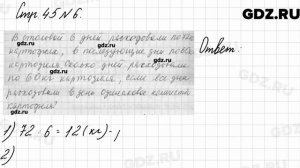 GDZ.RU
Стр 45 № 6.
В столовой 6 дней расходовали по
картофеля, в последующие дни по
картофеля. Сколько дней расходовали
по 60 кг картофеля, если все дни
расходовали в день одинаковое
картофеля?
Ответ:
1) 72 : 6 = 12 (кг) - ;
2)
GDZ.RU